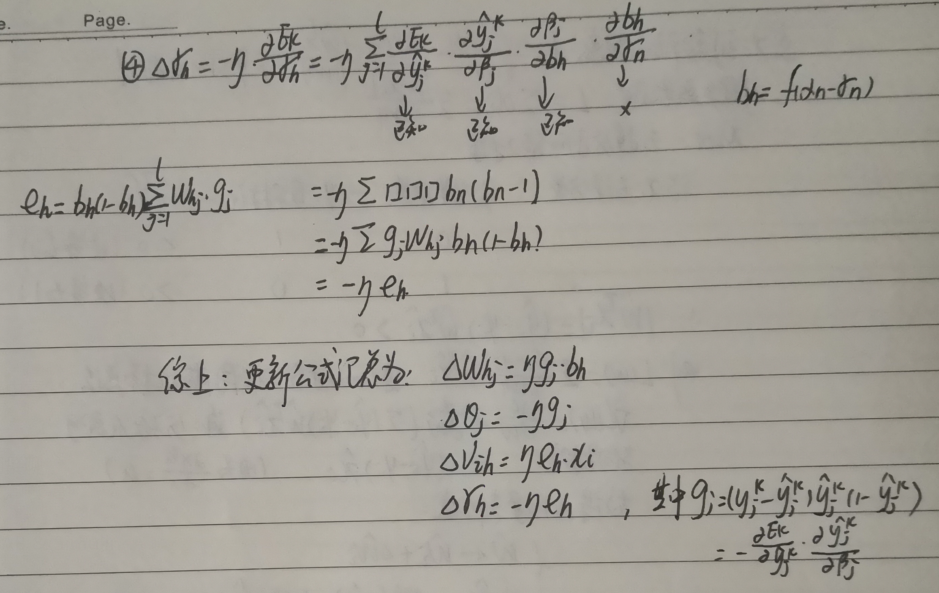 e. Page.
④ Δγh = -η ∂Ek/∂γh = -η Σ_{j=1}^{l} ∂Ek/∂ŷj^k · ∂ŷj^k/∂βj · ∂βj/∂bh · ∂bh/∂γn
↓ ↓ ↓ ↓
已知 已知 已知 × bh = f(αn-γn)
eh = bh(1-bh) Σ_{j=1}^{l} Whj·gj = -η Σ □□□ bn(bn-1)
= -η Σ gj Whj bn(1-bh)
= -η eh
综上：更新公式汇总为: ΔWhj = ηgj·bh
Δθj = -ηgj
ΔVih = ηeh·xi
Δγh = -ηeh , 其中 gj = (yj^k - ŷj^k) ŷj^k (1 - ŷj^k)
= - ∂Ek/∂ŷj^k · ∂ŷj^k/∂βj